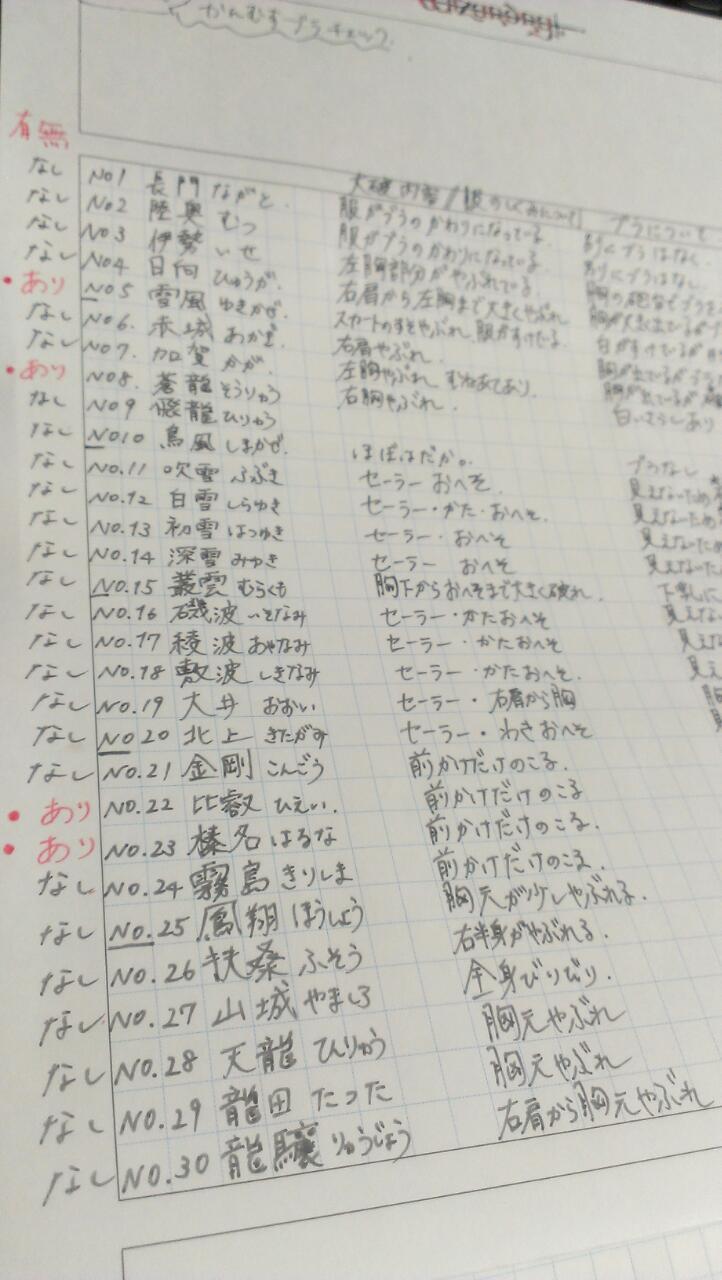 かんむすブラチェック
有無
大破内容/服のしくみについて ブラについて
なし No1 長門 ながと. 服がブラのかわりになっている. 別にブラはなく.
なし No2 陸奥 むつ 服がブラのかわりになっている. 別にブラはなし.
なし No3 伊勢 いせ 左胸部分がやぶれている.
なし No4 日向 ひゅうが. 右肩から左胸まで大きくやぶれ
・あり No5 雪風 ゆきかぜ. スカートのすそやぶれ 服がすけてる.
なし No6. 赤城 あかぎ 右肩やぶれ.
なし No7. 加賀 かが. 左胸やぶれ むねあてあり.
・あり No8. 蒼龍 そうりゅう 右胸やぶれ.
なし No9 飛龍 ひりゅう
なし No10 島風 しまかぜ. ほぼはだか。 ブラなし
なし No.11 吹雪 ふぶき セーラー おへそ.
なし No.12 白雪 しらゆき セーラー・かた・おへそ.
なし No.13 初雪 はつゆき セーラー・おへそ
なし No.14 深雪 みゆき セーラー おへそ
なし No.15 叢雲 むらくも 胸下からおへそまで大きく破れ.
なし No.16 磯波 いそなみ セーラー・かたおへそ
なし No.17 綾波 あやなみ セーラー・かたおへそ
なし No.18 敷波 しきなみ セーラー・かたおへそ.
なし No.19 大井 おおい セーラー・右肩から胸
なし No20 北上 きたがみ セーラー・わきおへそ
なし No.21 金剛 こんごう 前かけだけのこる.
・あり No.22 比叡 ひえい. 前かけだけのこる
・あり No.23 榛名 はるな 前かけだけのこる.
なし No.24 霧島 きりしま 前かけだけのこる.
なし No.25 鳳翔 ほうしょう 胸元が少しやぶれる.
なし No.26 扶桑 ふそう 右半身がやぶれる.
なし No.27 山城 やましろ 全身びりびり.
なし No.28 天龍 ひりゅう 胸元やぶれ
なし No.29 龍田 たつた 胸元やぶれ
なし No.30 龍驤 りゅうじょう 右肩から胸元やぶれ